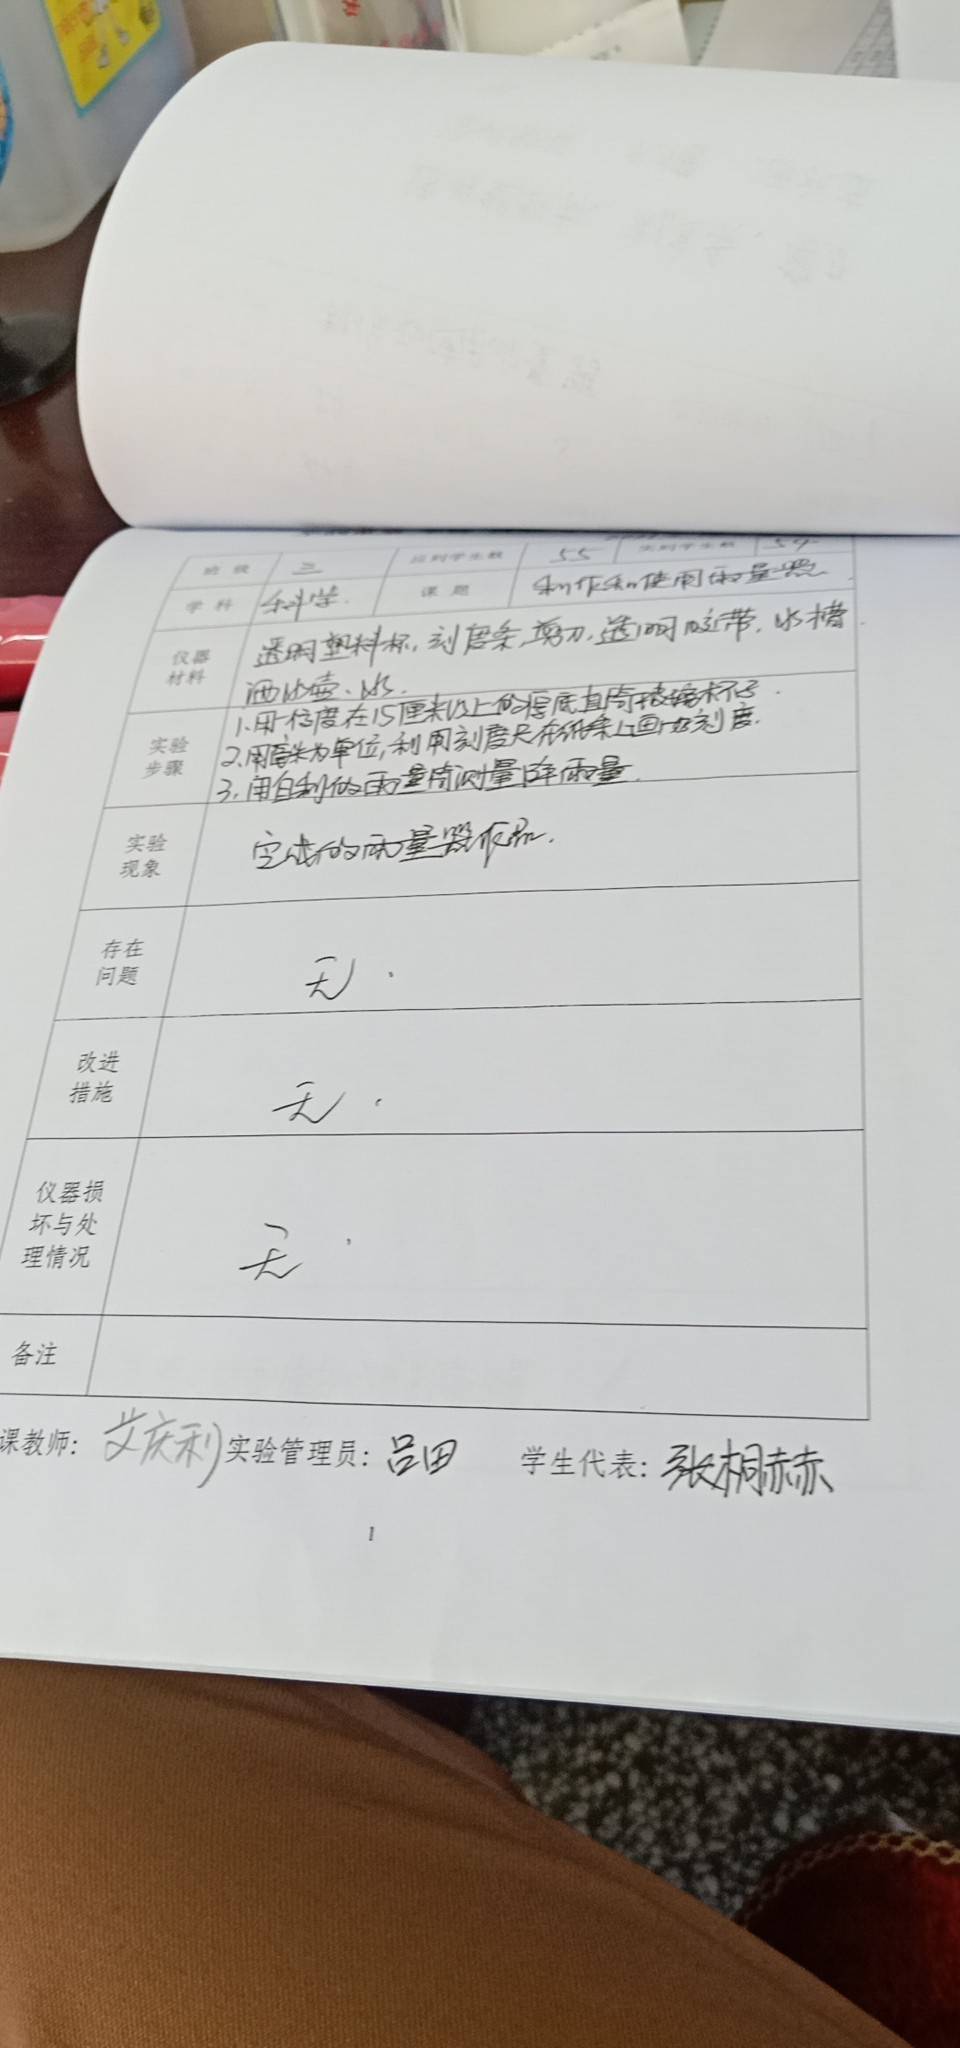 班 级 三 应到学生数 55 实到学生数 54
学 科 科学. 课 题 制作和使用雨量器
仪器
材料
透明塑料杯,刻度条,剪刀,透明胶带,水槽
洒水壶、水.
实验
步骤
1.用高度在15厘米以上的厚底直筒玻璃杯子.
2.用毫米为单位,利用刻度尺在纸条上画出刻度.
3.用自制的雨量筒测量降雨量.
实验
现象
完成的雨量器作品.
存在
问题
无.
改进
措施
无.
仪器损
坏与处
理情况
无.
备注
课教师: 艾庆利 实验管理员: 吕田 学生代表: 张桐赫
1